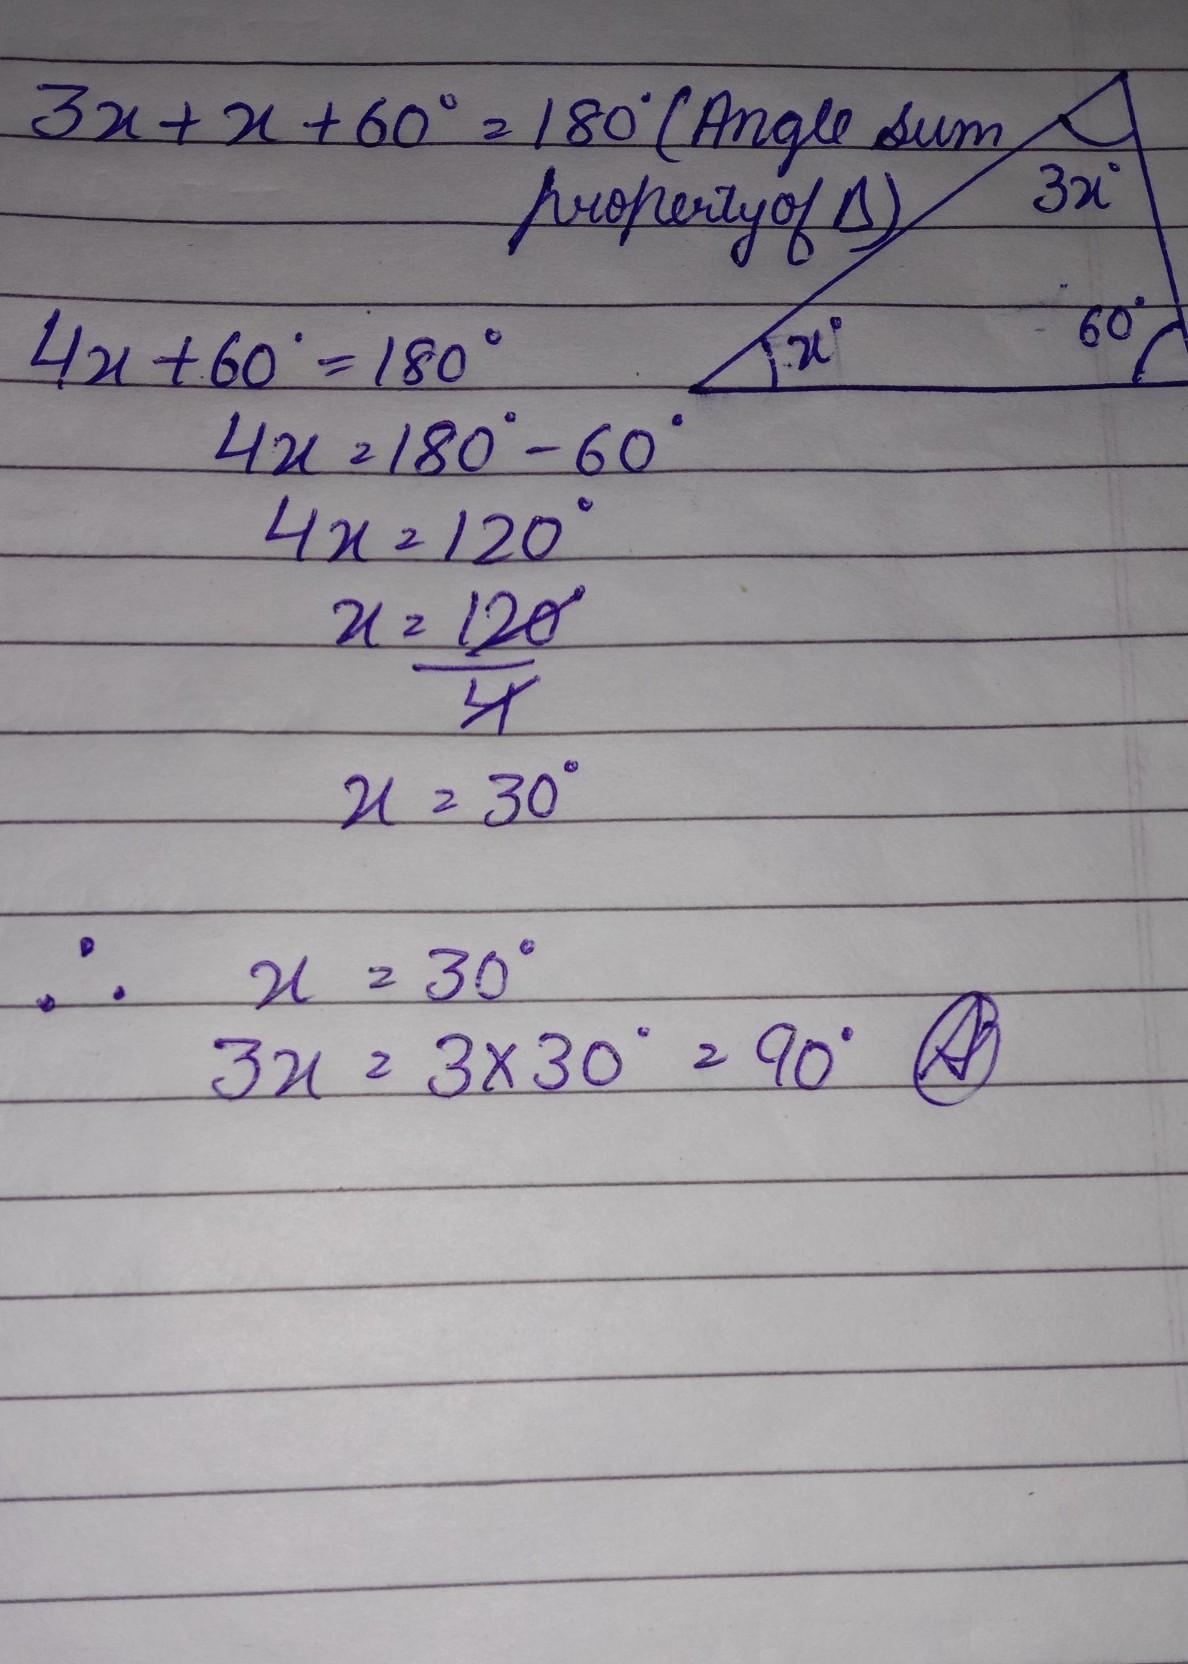 3x + x + 60° = 180° (Angle sum
property of Δ)
3x°
x°
60°
4x + 60° = 180°
4x = 180° - 60°
4x = 120°
x = 120°
4
x = 30°
∴ x = 30°
3x = 3×30° = 90°